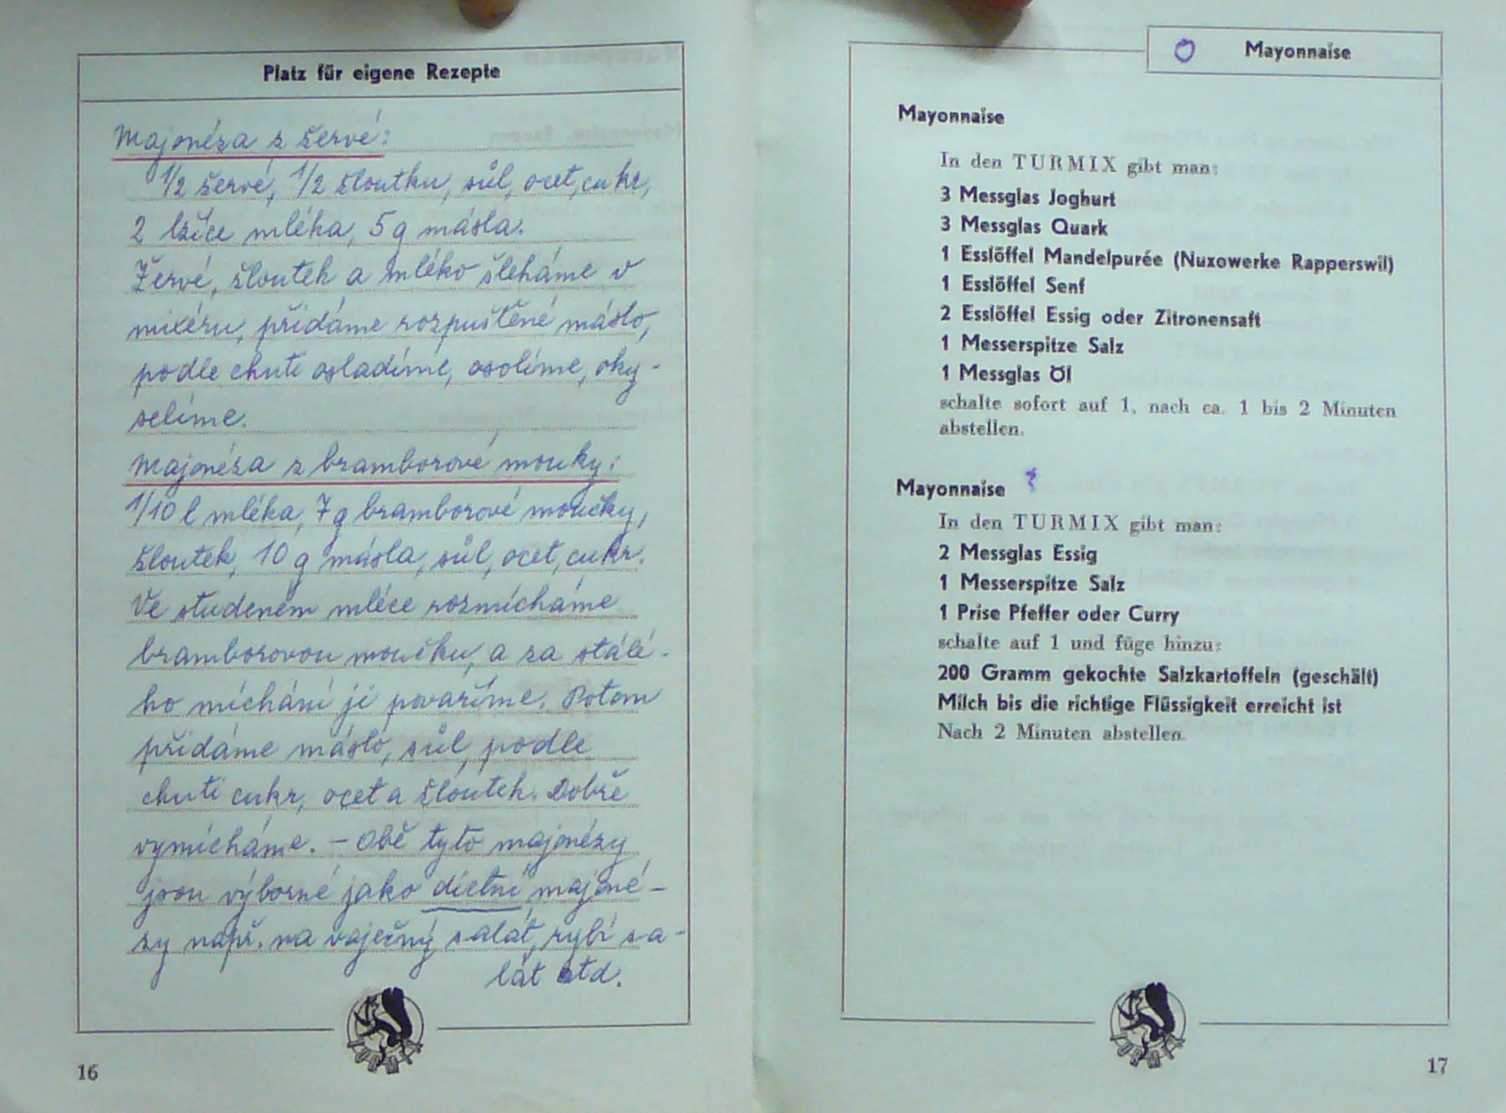 Platz für eigene Rezepte
Majonéza z žervé:
1/2 žervé, 1/2 žloutku, sůl, ocet, cukr,
2 lžíce mléka, 5 g másla.
Žervé, žloutek a mléko šleháme v
mixéru, přidáme rozpuštěné máslo,
podle chuti osladíme, osolíme, oky-
selíme.
Majonéza z bramborové mouky:
1/10 l mléka, 7 g bramborové moučky,
žloutek, 10 g másla, sůl, ocet, cukr.
Ve studeném mléce rozmícháme
bramborovou moučku, a za stálé-
ho míchání ji povaříme. Potom
přidáme máslo, sůl, podle
chuti cukr, ocet a žloutek. Dobře
vymícháme. - Obě tyto majonézy
jsou výborné jako dietní majoné-
zy např. na vaječný salát, rybí sa-
lát atd.
TURMIX
16
Mayonnaise
Mayonnaise
In den TURMIX gibt man:
3 Messglas Joghurt
3 Messglas Quark
1 Esslöffel Mandelpurée (Nuxowerke Rapperswil)
1 Esslöffel Senf
2 Esslöffel Essig oder Zitronensaft
1 Messerspitze Salz
1 Messglas Öl
schalte sofort auf 1, nach ca. 1 bis 2 Minuten
abstellen.
Mayonnaise
In den TURMIX gibt man:
2 Messglas Essig
1 Messerspitze Salz
1 Prise Pfeffer oder Curry
schalte auf 1 und füge hinzu:
200 Gramm gekochte Salzkartoffeln (geschält)
Milch bis die richtige Flüssigkeit erreicht ist
Nach 2 Minuten abstellen.
TURMIX
17